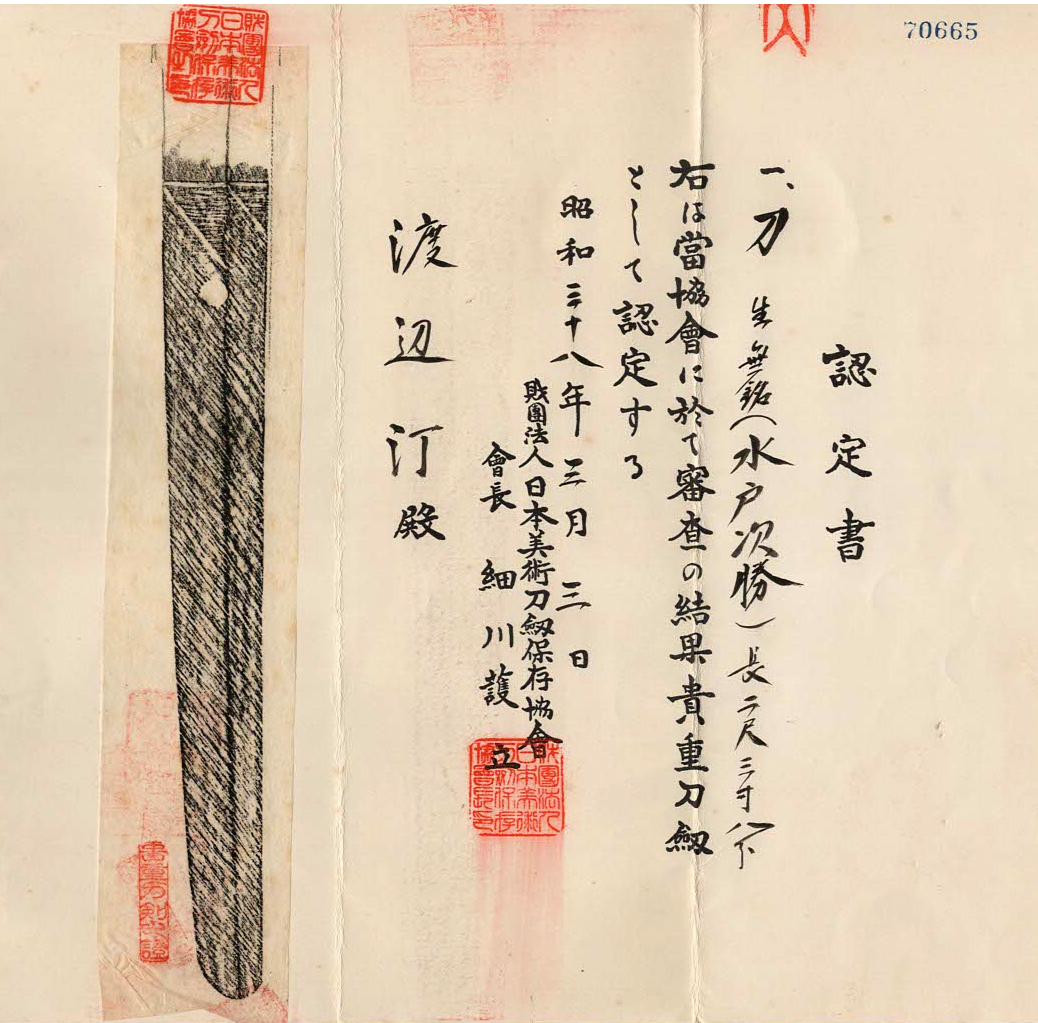 70665
認定書
一、刀 生無銘(水戸次勝)長二尺三寸八分
右は當協會に於て審査の結果貴重刀劔
として認定する
昭和三十八年三月三日
財團法人日本美術刀劔保存協會
會長 細川護立
渡辺汀殿
財團法人日本美術刀劔保存協會之印
財團法人日本美術刀劔保存協會長印
貴重刀剣之證